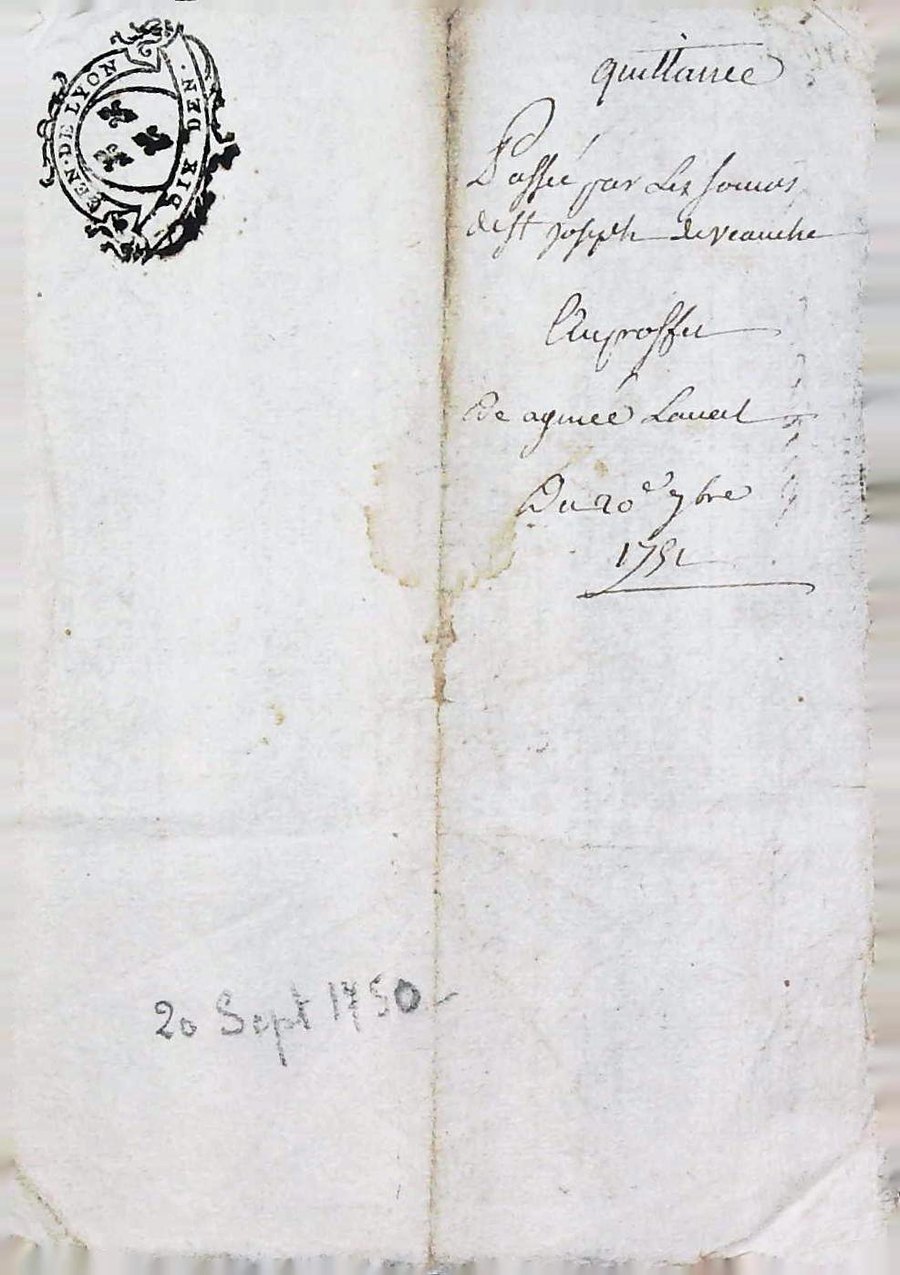 GEN · DE LYON
DIX DEN ·
quittance
Passée par Les soeurs
de St joseph de veauche
Au proffit
De agnieé Lauert
Du 20e 7bre
1751
20 Sept 1750